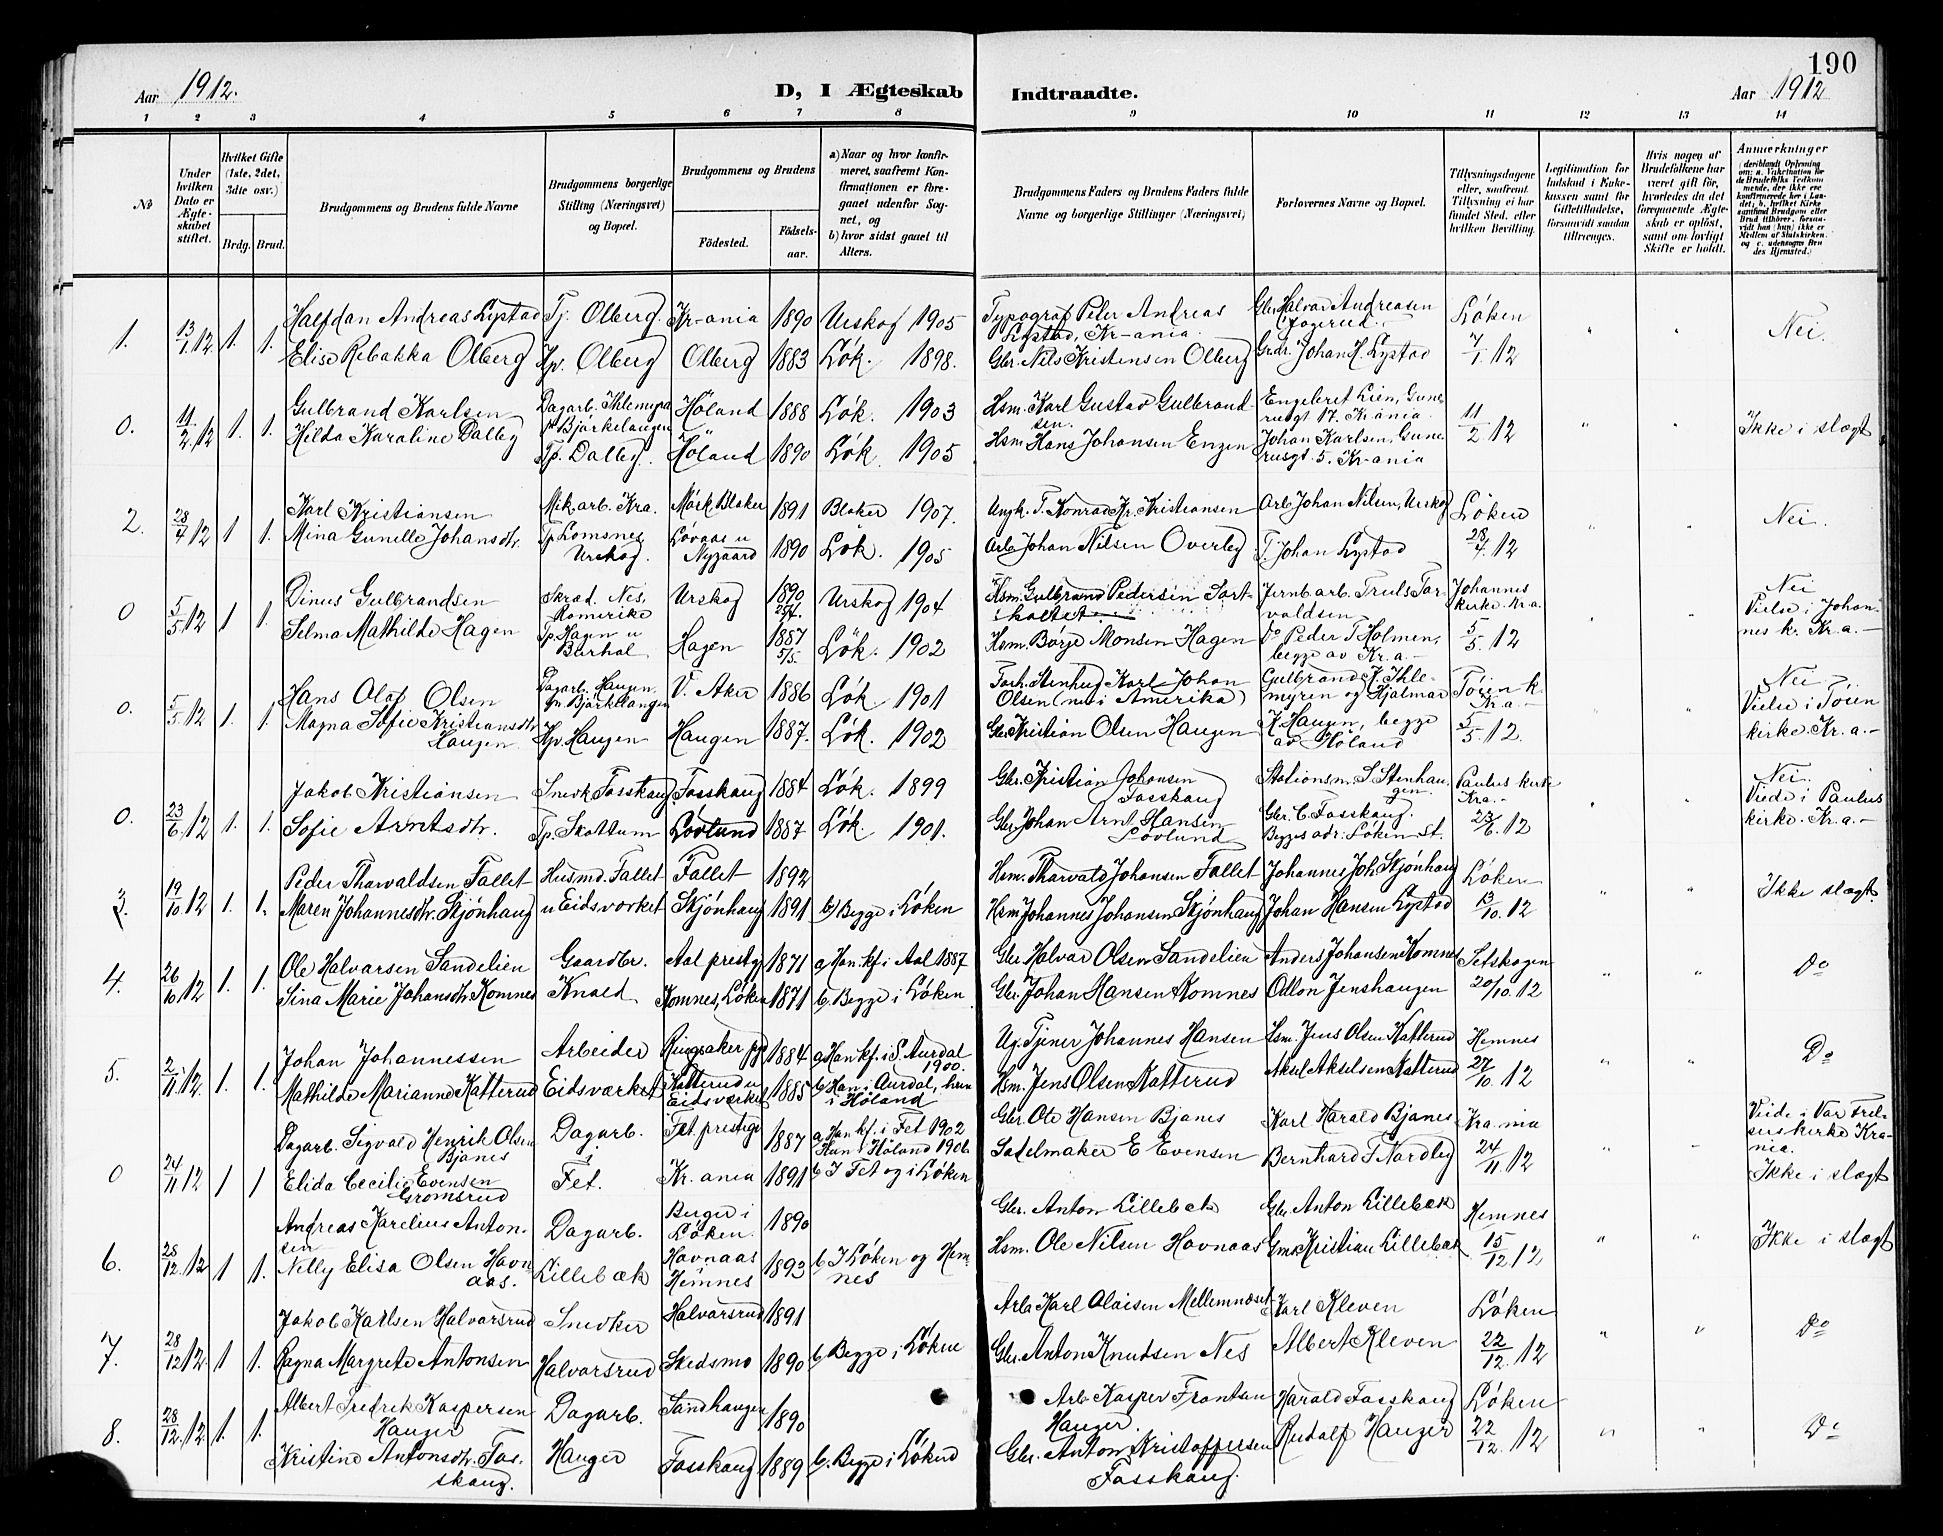 190
Aar 1912.
D, I Ægteskab Indtraadte.
Aar 1912
1 2 3 4 5 6 7 8 9 10 11 12 13 14
No
Under hvilken Dato er Ægteskabet stiftet.
Hvilket Gifte (1ste, 2det, 3dte osv.)
Brdg. Brud.
Brudgommens og Brudens fulde Navne
Brudgommens borgerlige Stilling (Næringsvei) og Bopæl.
Brudgommens og Brudens
Födested.
Födselsaar.
a) Naar og hvor konfirmeret, saafremt Konfirmationen er foregaaet udenfor Sognet, og
b) hvor sidst gaaet til Alters.
Brudgommens Faders og Brudens Faders fulde Navne og borgerlige Stillinger (Næringsvei)
Forlovernes Navne og Bopæl.
Tillysningsdagene eller, saafremt Tillysning ei har fundet Sted, efter hvilken Bevilling.
Legitimation for Indskud i Enkekassen samt for Giftetilladelse, forsaavidt saadan tiltrænges.
Hvis nogen af Brudefolkene har været gift för, hvorledes da det foregaaende Ægteskab er oplöst, samt om lovligt Skifte er holdt.
Anmærkninger
1. 13/1.12 1. 1. Halfdan Andreas Lystad Tj. Olberg. Kr-ania 1890 Urskog 1905 Typograf Peter Andreas Lystad, Kr-ania. Gbr. Halvar Andreasen Løken 7/1.12 " " Nei.
Elise Rebakka Olberg Hp. Olberg Olberg 1883 Løk. 1898. Gbr. Nils Kristensen Olberg Grdr. Johan H. Lystad
0. 11/2.12 1. 1. Gulbrand Karlsen Dagarb. Ihlemyra Bjørkelangen Høland 1888 Løk. 1903 Hsm. Karl Gustav Gulbrandsen. Engebret Lien, Gunerusgt 17. Kr.ania. 11/2 12 " " Ikke i slægt
Hilda Karoline Dalby Tp. Dalby. Høland 1890 Løk. 1905 Hsm. Hans Johansen Engen Johan Karlsen, Gunerusgt. 5. Kr-ania
2. 28/4 12 1 1. Karl Kristiansen Mik.arb. Kra. Mørk Blaker 1891 Blaker 1907. Ungk. T. Konrad Kr. Kristiansen Arb Johan Nilsen, Urskog Løken 28/4.12 " " Nei.
Mina Gunelle Johansdtr. Tp Lomsnes Urskog. Løvaas u Nygaard 1890 Løk. 1905 Arb Johan Nilsen Overby T. Johan Lystad
0 5/5 12 1 1. Dinus Gulbrandsen Skræd. Nes, Romerike Urskog 1890 Urskog 1904 Hsm. Gulbrand Pedersen Jernb arb. Truls Torvaldsen Johannes kirke Kr.a. 5/5 12 Nei Vielse i Johannes kr. Kr.a.-
Selma Mathilde Hagen Tp. Hagen u Hagen 1887 5/5. Løk. 1902 Hsm. Borge Monsen Hagen Do Peder T Holmen, begge av Kr.a.-
0. 5/5 12 1. 1. Hans Olaf Olsen Dagarb. Haugen, Bjørkelangen V. Aker 1886 Løk 1901 Stenhug. Karl Johan Olsen (nu i Amerika) Gulbrand J. Ihlemyren og Hjalmar K Haugen, begge av Høland Tøien k. Kr.a.- 5/5.12. Nei. Vielse i Tøien kirke. Kr.a.-
Magna Sofie Kristiansdtr Haugen Hp Haugen Haugen 1887. Løk. 1902 Gbr Kristian Olsen Haugen
0. 23/6 12 1. 1. Jakob Kristiansen Snevk Fosskaug Fosskaug 1884 Løk. 1899 Gbr. Kristian Johansen Fosskaug Stationsm. S Stenhaugen. Paulus kirke Kra.- 23/6.12 Nei. Viede i Paulus kirke. Kr.a.-
Sofie Arntsdtr. Tp. Skattum Løvlund 1887 Løk 1901. Gbr Johan Arnt Hansen Løvlund Gbr. C. Fosskaug. Begges adr: Løken st.
3. 19/10 12 1. 1. Peder Tharvaldsen Fallet Husmd. Fallet Fallet 1892 Hsm. Tharvald Johansen Fallet Johannes Joh. Skjønhaug Løken 13/10.12 " " Ikke slægt
Maren Johannesdtr. Skjønhaug u Eidsverket Skjønhaug 1891 b) Begge i Løken Hsm Johannes Johansen Skjønhaug Johan Hansen Lystad
4. 26/10 12 1. 1. Ole Halvarsen Sandelien Gaardbr. Aal prestgj 1871 a Han kf. i Aal 1887 Gbr. Halvar Olsen Sandelien Anders Johansen Komnes Setskogen 20/10.12 " " Do
Sina Marie Johansdtr Komnes Knold Komnes, Løken 1871 b. Begge i Løken Gbr. Johan Hansen Komnes Odlon Jenshaugen
5. 2/11.12. 1. 1. Johan Johannessen Arbeider Ringsaker pg 1884 a Han kf. i S. Aurdal 1900. Ug. Tjener Johannes Hansen Hsm. Jens Olsen Katterud Hemnes 27/10.12 " " Do
Mathilde Marianne Katterud Eidsverket Katterud u Eidsverket 1885 b Han i Aurdal, hun i Høland Hsm. Jens Olsen Katterud Aksel Akselsen Katterud
0 24/11 12 1 1 Dagarb. Sigvald Henrik Olsen Bjanes Dagarb. i Fet. Fet. prestgj 1887 a Han kf. i Fet 1902 Hun i Høland 1906 Gbr. Ole Hansen Bjanes Karl Harald Bjanes Kra.nia 24/11.12 " Viede i Var Frelsers kirke Kra-nia. Ikke i slægt
Elida Cecilie Evensen Gromsrud Kr.ania 1891 b I Fet og i Løken Sadelmaker E Evensen Bernhard F Nordby
6. 28/12.12 1 1. Andreas Karelius Antonsen Dagarb. Berger i Løken. 1890 Gbr. Anton Lillebæk Gbr. Anton Lillebæk Hemnes 15/12 12 " " Ikke i slægt
Nelly Elisa Olsen Havnaas. Lillebæk Havnaas Hemnes 1893 b I Løken og Hemnes Hsm. Ole Nilsen Havnaas Kristian Lillebæk
7. 28/12 12 1 1. Jakob Karlsen Halvarsrud Snevker Halvarsrud 1891 Arb. Karl Olaisen Mellemnæset Karl Kleven Løken 22/12.12 " " Do
Ragna Margrete Antonsen Halvarsrud Skedsmo 1890 b Begge i Løken Gbr. Anton Knudsen Nes Albert Kleven
8. 28/12.12. 1. 1. Albert Fredrek Kaspersen Hauger Dagarb. Sandhaugen 1890 Arb. Kasper Frantsen Hauger. Harald Fosskaug Løken 22/12.12 " " Do
Kristine Antonsdtr. Fosskaug. Hauger Fosskaug 1889 b. Begge i Løken Gbr. Anton Kristoffersen Fosskaug. Rudolf Hauger